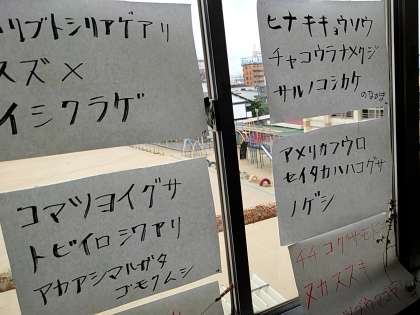 リブトシリアゲアリ
スズメ
イシクラゲ
コマツヨイグサ
トビイロシワアリ
アカアシマルガタ
ゴモクムシ
ヒナキキョウソウ
チャコウラナメクジ
サルノコシカケ
のなかま
アメリカフウロ
セイタカハハコグサ
ノゲシ
チチコグサモドキ
ヌカススキ